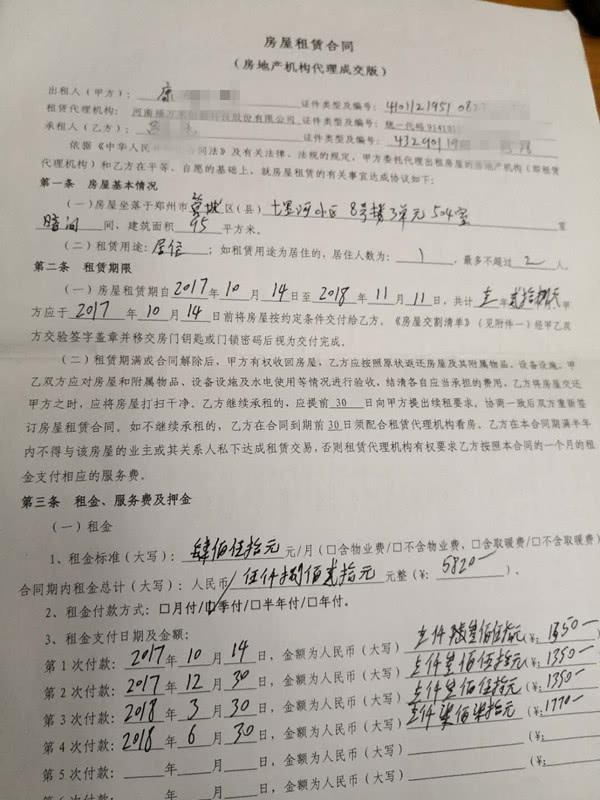 房屋租赁合同
（房地产机构代理成交版）
出租人（甲方）：康 证件类型及编号：4101121951082
租赁代理机构：河南 股份有限公司 证件类型及编号：统一代码
承租人（乙方）： 证件类型及编号：432901
依据《中华人民 合同法》及有关法律、法规的规定，甲方委托代理出租房屋的房地产机构（即租赁
代理机构）和乙方在平等、自愿的基础上，就房屋租赁的有关事宜达成协议如下：
第一条 房屋基本情况
（一）房屋坐落于郑州市管城区（县）十里河小区 8号楼3单元504室 室
暗间 间，建筑面积 95 平方米。
（二）租赁用途：居住；如租赁用途为居住的，居住人数为：1，最多不超过 2 人。
第二条 租赁期限
（一）房屋租赁期自2017年10月14日至2018年11月11日，共计壹年贰拾捌天甲
方应于2017年10月14日前将房屋按约定条件交付给乙方。《房屋交割清单》（见附件一）经甲乙双
方交验签字盖章并移交房门钥匙或门锁密码后视为交付完成。
（二）租赁期满或合同解除后，甲方有权收回房屋，乙方应按照原状返还房屋及其附属物品、设备设施。甲
乙双方应对房屋和附属物品、设备设施及水电使用等情况进行验收，结清各自应当承担的费用。乙方将房屋交还
甲方之时，应将房屋打扫干净。乙方继续承租的，应提前 30 日向甲方提出续租要求，协商一致后双方重新签
订房屋租赁合同。如不继续承租的，乙方在合同到期前30日须配合租赁代理机构看房。乙方在本合同期满半年
内不得与该房屋的业主或其关系人私下达成租赁交易，否则租赁代理机构有权要求乙方按照本合同的一个月的租
金支付相应的服务费。
第三条 租金、服务费及押金
（一）租金
1、租金标准（大写）：肆佰伍拾元 元/月（□含物业费/□不含物业费，□含取暖费/□不含取暖费）
合同期内租金总计（大写）：人民币伍仟捌佰贰拾元 元整（¥：5820－）。
2、租金付款方式：□月付/☑季付/□半年付/□年付。
3、租金支付日期及金额：
第1次付款：2017年10月14日，金额为人民币（大写）壹仟叁佰伍拾元（¥：1350－
第2次付款：2017年12月30日，金额为人民币（大写）壹仟叁佰伍拾元（¥：1350－
第3次付款：2018年3月30日，金额为人民币（大写）壹仟叁佰伍拾元（¥：1350－
第4次付款：2018年6月30日，金额为人民币（大写）壹仟柒佰柒拾元（¥：1770－
第5次付款： 年 月 日，金额为人民币（大写） （¥：
年 月 日，金额为人民币（大写） （¥：